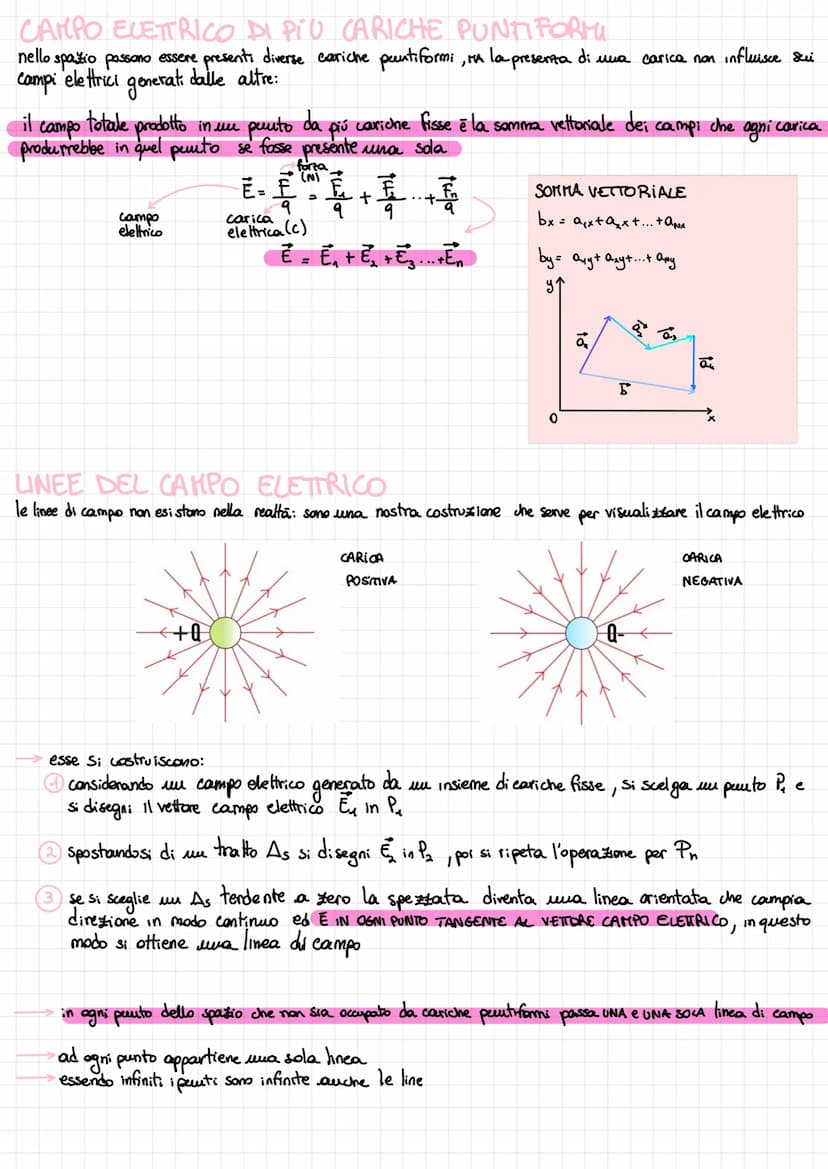 CAMPO ELETTRICO DI PIÙ CARICHE PUNTIFORMI
nello spazio possono essere presenti diverse cariche puntiformi, MA la presenza di una carica non influisce sui
campi elettrici generati dalle altre:
il campo totale prodotto in un punto da più cariche fisse è la somma vettoriale dei campi che ogni carica
produrrebbe in quel punto se fosse presente una sola
forza
(N)
E⃗ = F⃗/q = F⃗₁/q + F⃗₂/q ... + F⃗n/q
campo
elettrico
carica
elettrica (C)
E⃗ = E⃗₁ + E⃗₂ + E⃗₃ ... + E⃗n
SOMMA VETTORIALE
bx = a₁x + a₂x + ... + aₙx
by = a₁y + a₂y + ... + aₙy
y
a⃗₁
a⃗₂
a⃗₃
a⃗₄
b⃗
O
x
LINEE DEL CAMPO ELETTRICO
le linee di campo non esistono nella realtà: sono una nostra costruzione che serve per visualizzare il campo elettrico
CARICA
POSITIVA
+Q
CARICA
NEGATIVA
Q-
→ esse si costruiscono:
① considerando un campo elettrico generato da un insieme di cariche fisse, si scelga un punto P₁ e
si disegni il vettore campo elettrico E⃗₁ in P₁
② spostandosi di un tratto Δs si disegni E⃗₂ in P₂, poi si ripeta l'operazione per Pn
③ se si sceglie un Δs tendente a zero la spezzata diventa una linea orientata che campia
direzione in modo continuo ed È IN OGNI PUNTO TANGENTE AL VETTORE CAMPO ELETTRICO, in questo
modo si ottiene una linea di campo
→ in ogni punto dello spazio che non sia occupato da cariche puntiformi passa UNA e UNA SOLA linea di campo
→ ad ogni punto appartiene una sola linea
→ essendo infiniti i punti sono infinite anche le line